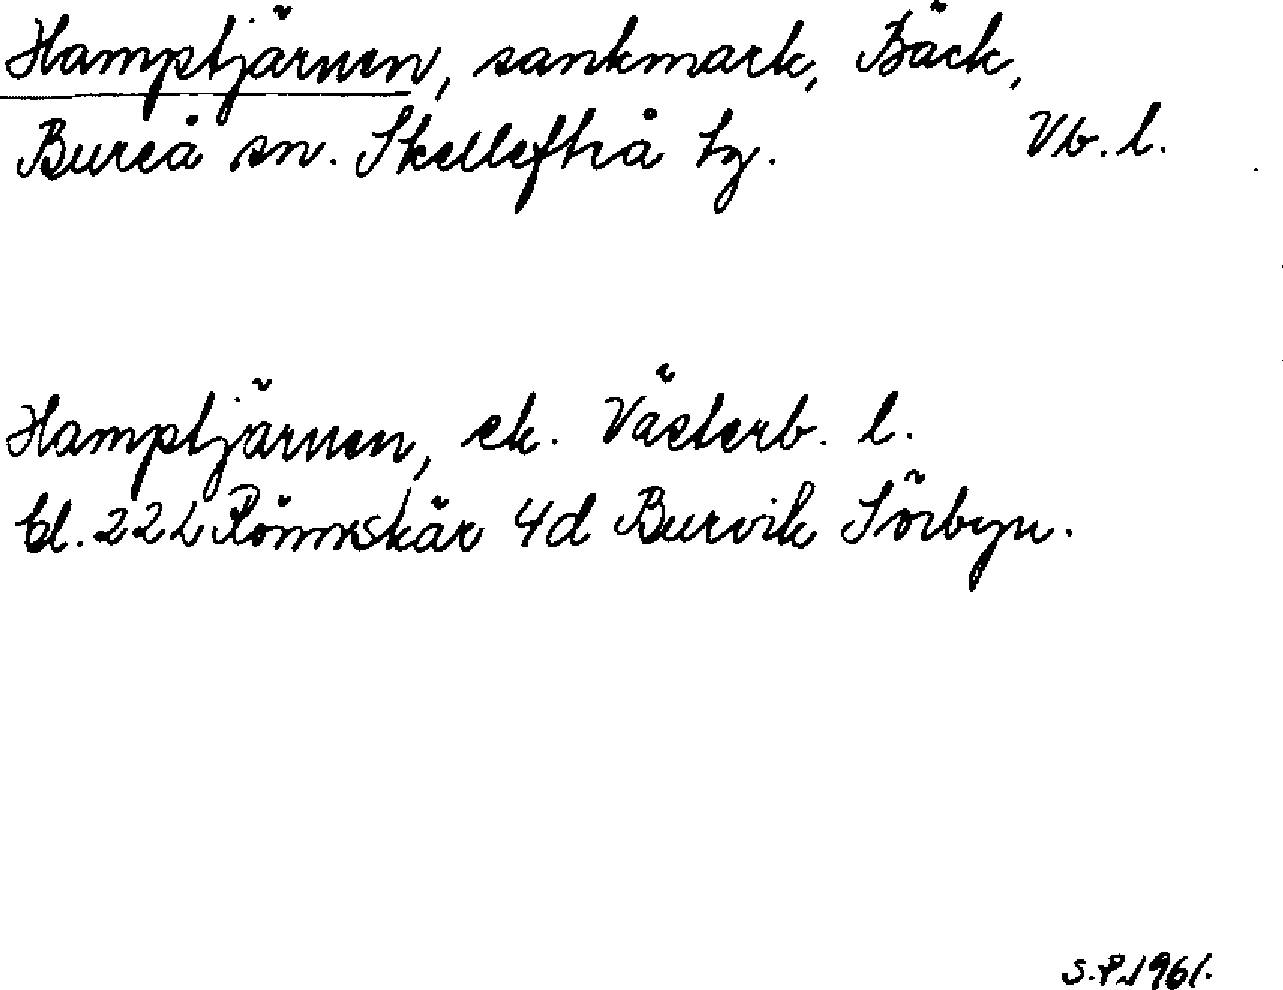 Hamptjärnen, sankmark, Bäck,
Bureå sn. Skellefteå tg. Vb. l.
Hamptjärnen, ek. Västerb. l.
bl. 22L Rönnskär 4d Burvik Sörbyn.
S.P. 1961.